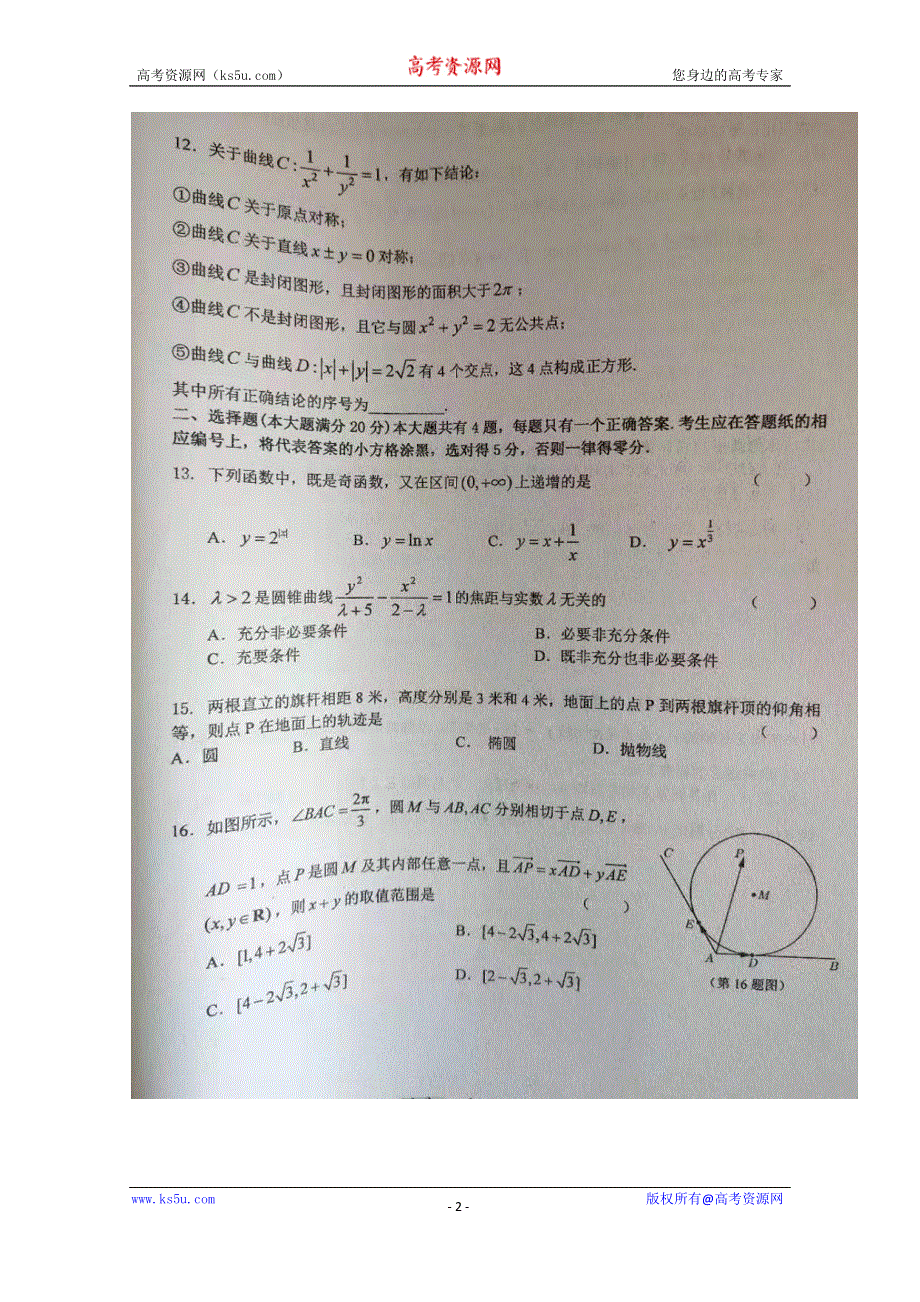 高考资源网（ks5u.com）
高考资源网
您身边的高考专家
12. 关于曲线C: 1/x² + 1/y² = 1, 有如下结论:
①曲线C关于原点对称;
②曲线C关于直线x±y=0对称;
③曲线C是封闭图形, 且封闭图形的面积大于2π;
④曲线C不是封闭图形, 且它与圆x²+y²=2无公共点;
⑤曲线C与曲线D:|x|+|y|=2√2有4个交点, 这4点构成正方形.
其中所有正确结论的序号为________.
二、选择题(本大题满分20分)本大题共有4题, 每题只有一个正确答案. 考生应在答题纸的相
应编号上, 将代表答案的小方格涂黑, 选对得5分, 否则一律得零分.
13. 下列函数中, 既是奇函数, 又在区间(0,+∞)上递增的是 ( )
A. y=2^|x| B. y=ln x C. y=x+1/x D. y=x^(1/3)
14. λ>2是圆锥曲线 y²/(λ+5) − x²/(2−λ) = 1的焦距与实数λ无关的 ( )
A. 充分非必要条件 B. 必要非充分条件
C. 充要条件 D. 既非充分也非必要条件
15. 两根直立的旗杆相距8米, 高度分别是3米和4米, 地面上的点P到两根旗杆顶的仰角相
等, 则点P在地面上的轨迹是 ( )
A. 圆 B. 直线 C. 椭圆 D. 抛物线
16. 如图所示, ∠BAC=2π/3, 圆M与AB,AC分别相切于点D,E,
AD=1, 点P是圆M及其内部任意一点, 且AP=xAD+yAE
(x,y∈R), 则x+y的取值范围是 ( )
A. [1,4+2√3] B. [4−2√3,4+2√3]
C. [4−2√3,2+√3] D. [2−√3,2+√3]
C
P
M
E
A
D
B
(第16题图)
www.ks5u.com
- 2 -
版权所有@高考资源网